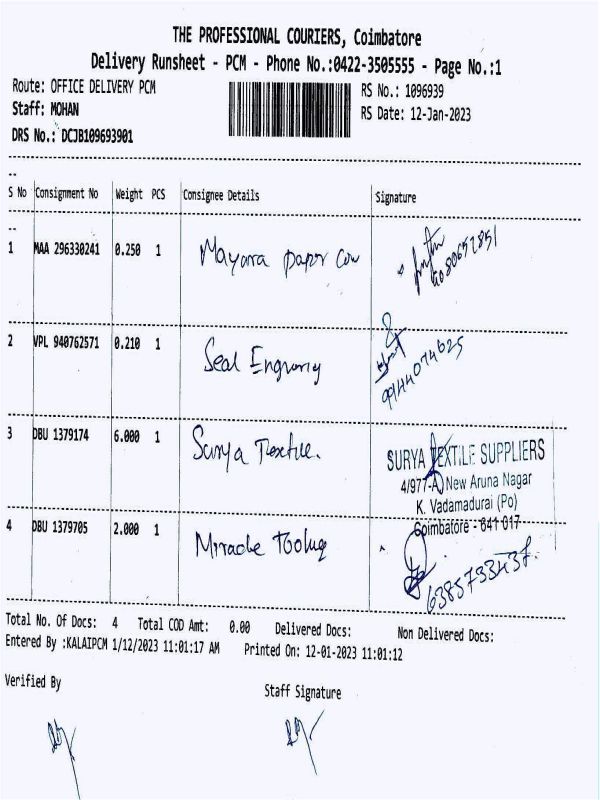 THE PROFESSIONAL COURIERS, Coimbatore
Delivery Runsheet - PCM - Phone No.:0422-3505555 - Page No.:1
Route: OFFICE DELIVERY PCM
RS No.: 1096939
Staff: MOHAN
RS Date: 12-Jan-2023
DRS No.: DCJB109693901
S No Consignment No Weight PCS Consignee Details Signature
1 MAA 296330241 0.250 1 Mayura paper
2 VPL 940762571 0.210 1 Seal
9944074625
3 DBU 1379174 6.000 1 Surya Textile.
SURYA TEXTILE SUPPLIERS
4/977-A, New Aruna Nagar
K. Vadamadurai (Po)
Coimbatore - 641 017
4 DBU 1379705 2.000 1
Total No. Of Docs: 4 Total COD Amt: 0.00 Delivered Docs: Non Delivered Docs:
Entered By :KALAIPCM 1/12/2023 11:01:17 AM Printed On: 12-01-2023 11:01:12
Verified By
Staff Signature